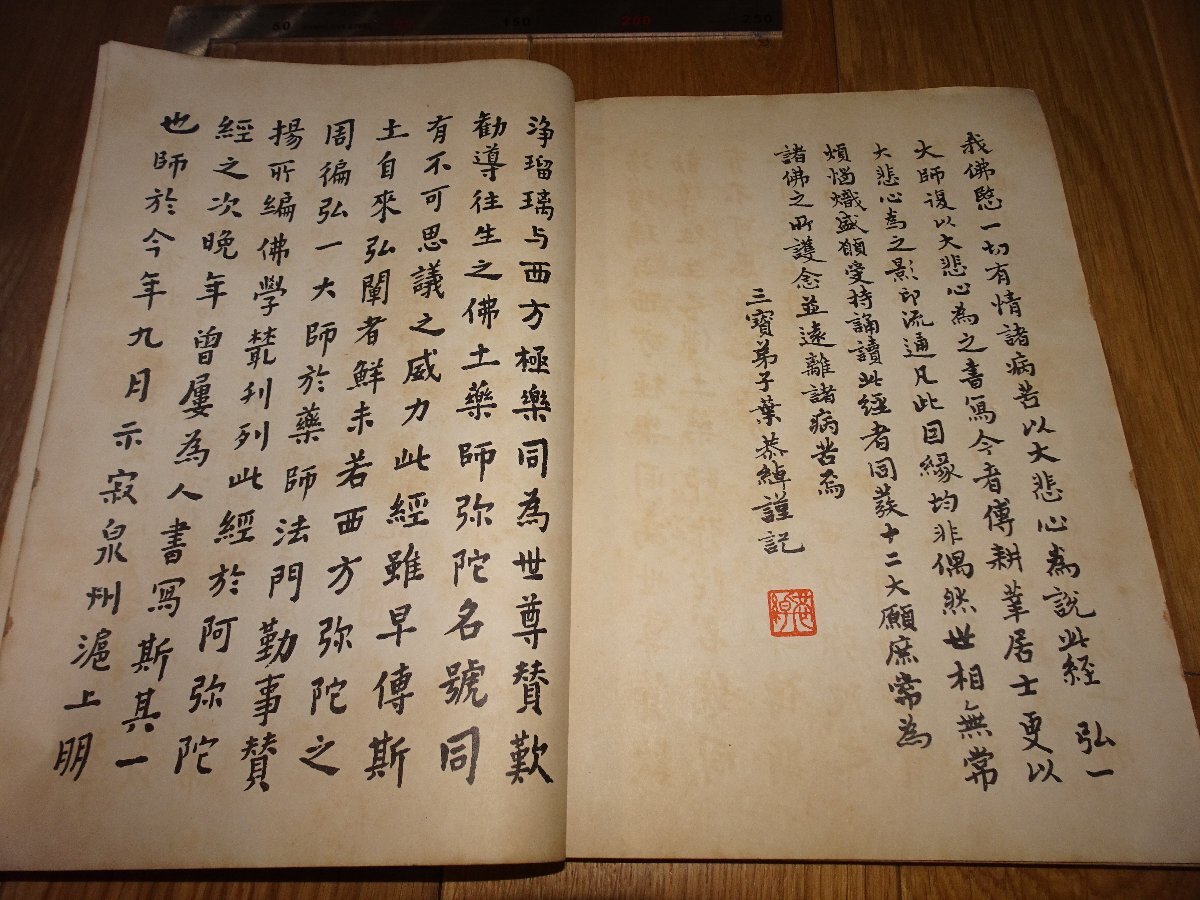 我佛愍一切有情諸病苦以大悲心為說此經 弘一
大師復以大悲心為之書寫今者傅耕莘居士更以
大悲心為之影印流通凡此因緣均非偶然世相無常
煩惱熾盛願受持誦讀此經者同發十二大願庶常為
諸佛之所護念並遠離諸病苦焉
三寶弟子葉恭綽謹記
淨瑠璃与西方極樂同為世尊贊歎
勸導往生之佛土藥師弥陀名號同
有不可思議之威力此經雖早傳斯
土自來弘闡者鮮未若西方弥陀之
周徧弘一大師於藥師法門勤事贊
揚所編佛學叢刊列此經於阿弥陀
經之次晚年曾屢為人書寫斯其一
也師於今年九月示寂泉州滬上朋
50
150
200
250